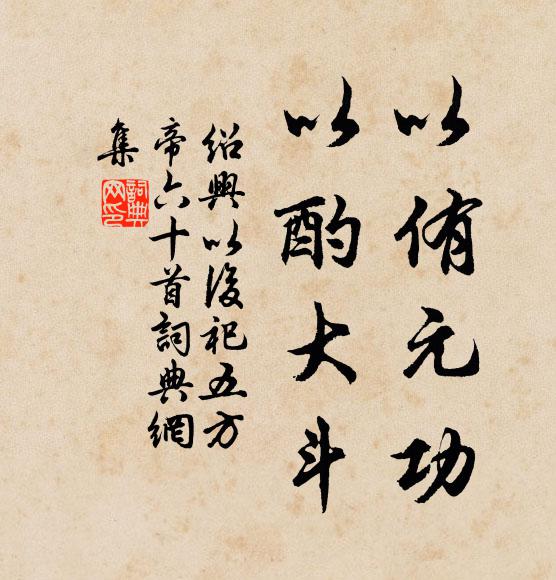 以侑元功
以酌大斗
紹興以後祀五方
帝六十首詞典網
集
詞典
网印